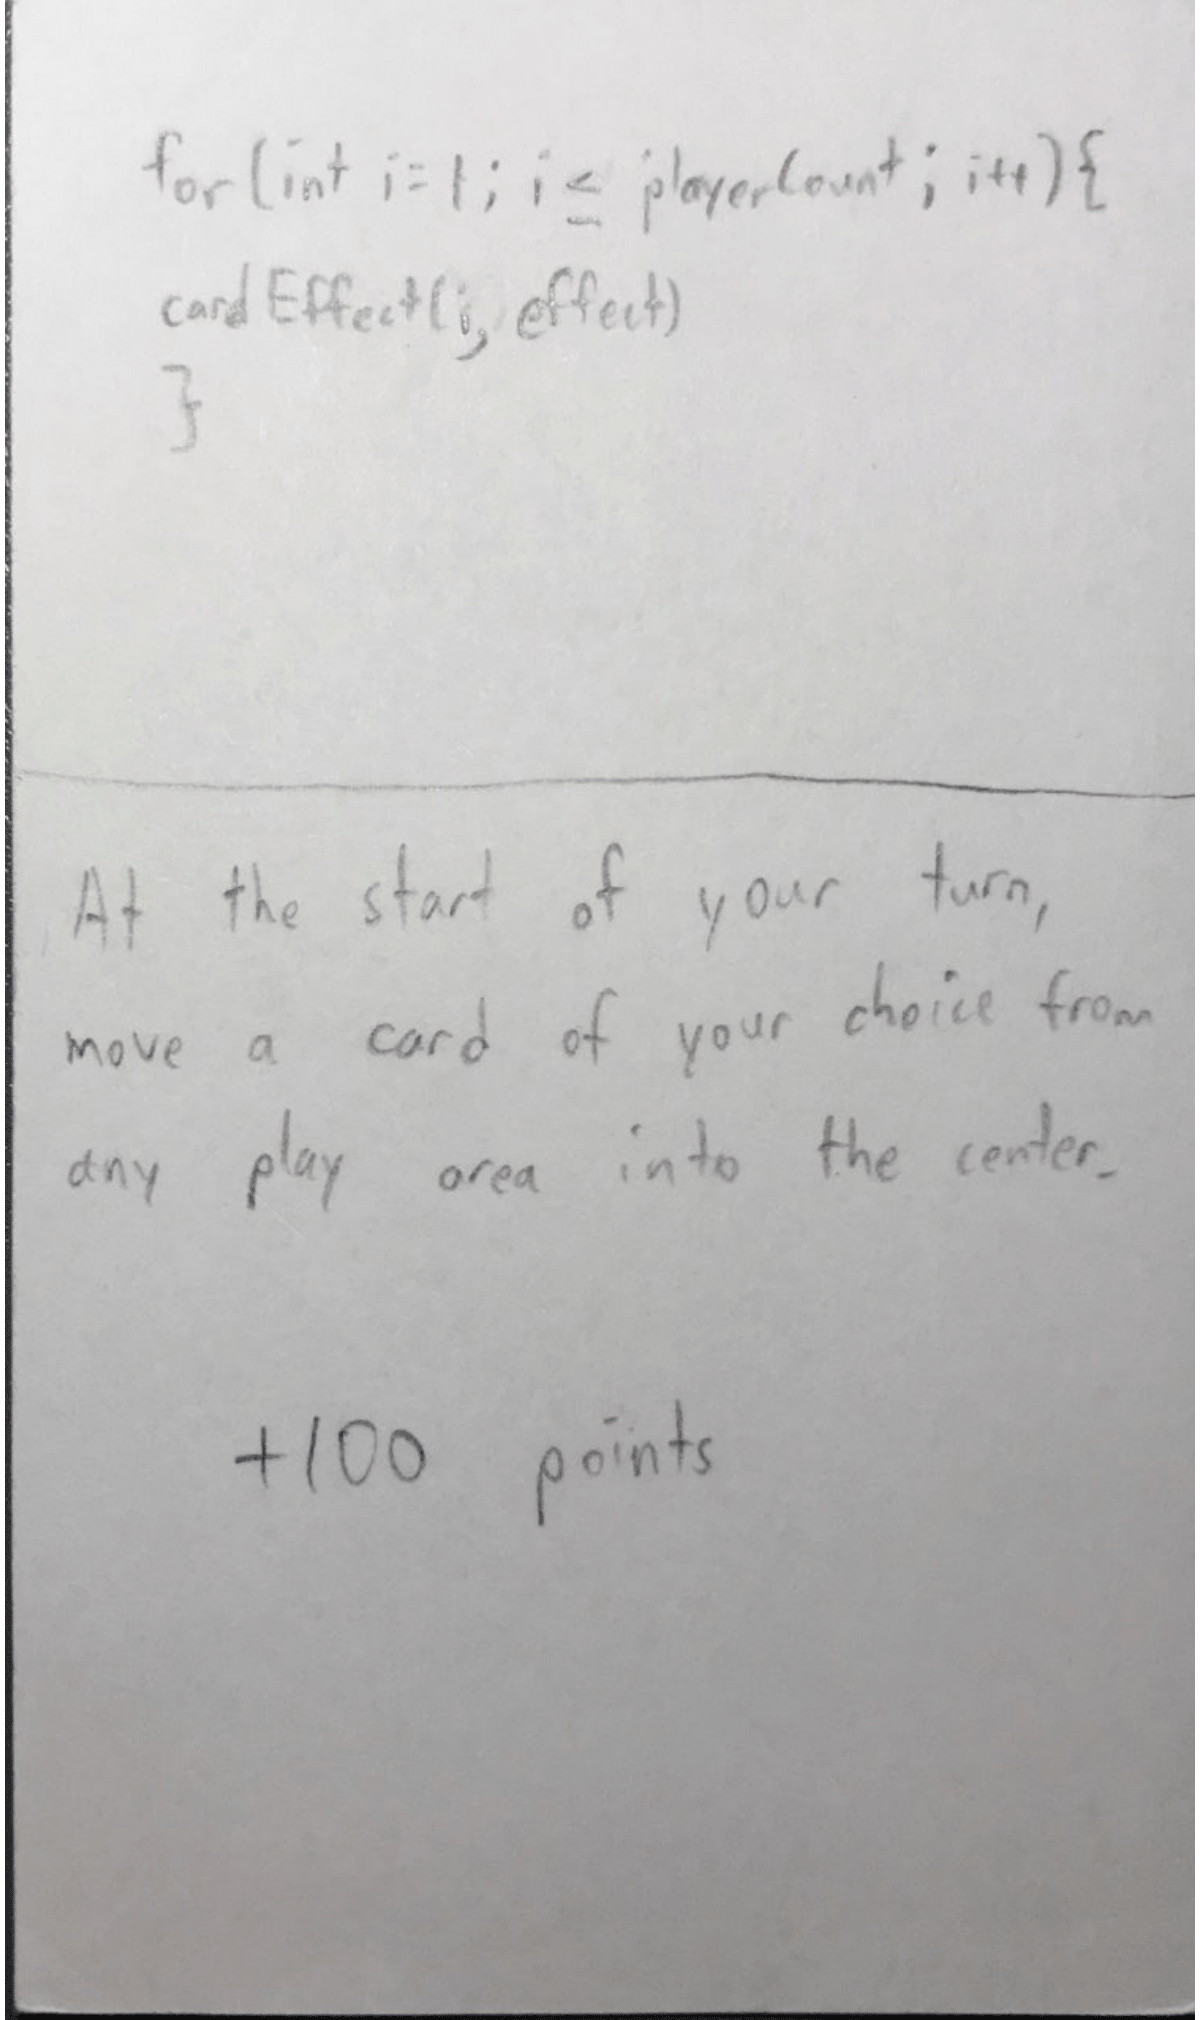 for (int i=1; i ≤ playerCount; i++) {
cardEffect(i, effect)
}
At the start of your turn,
move a card of your choice from
any play area into the center.
+100 points